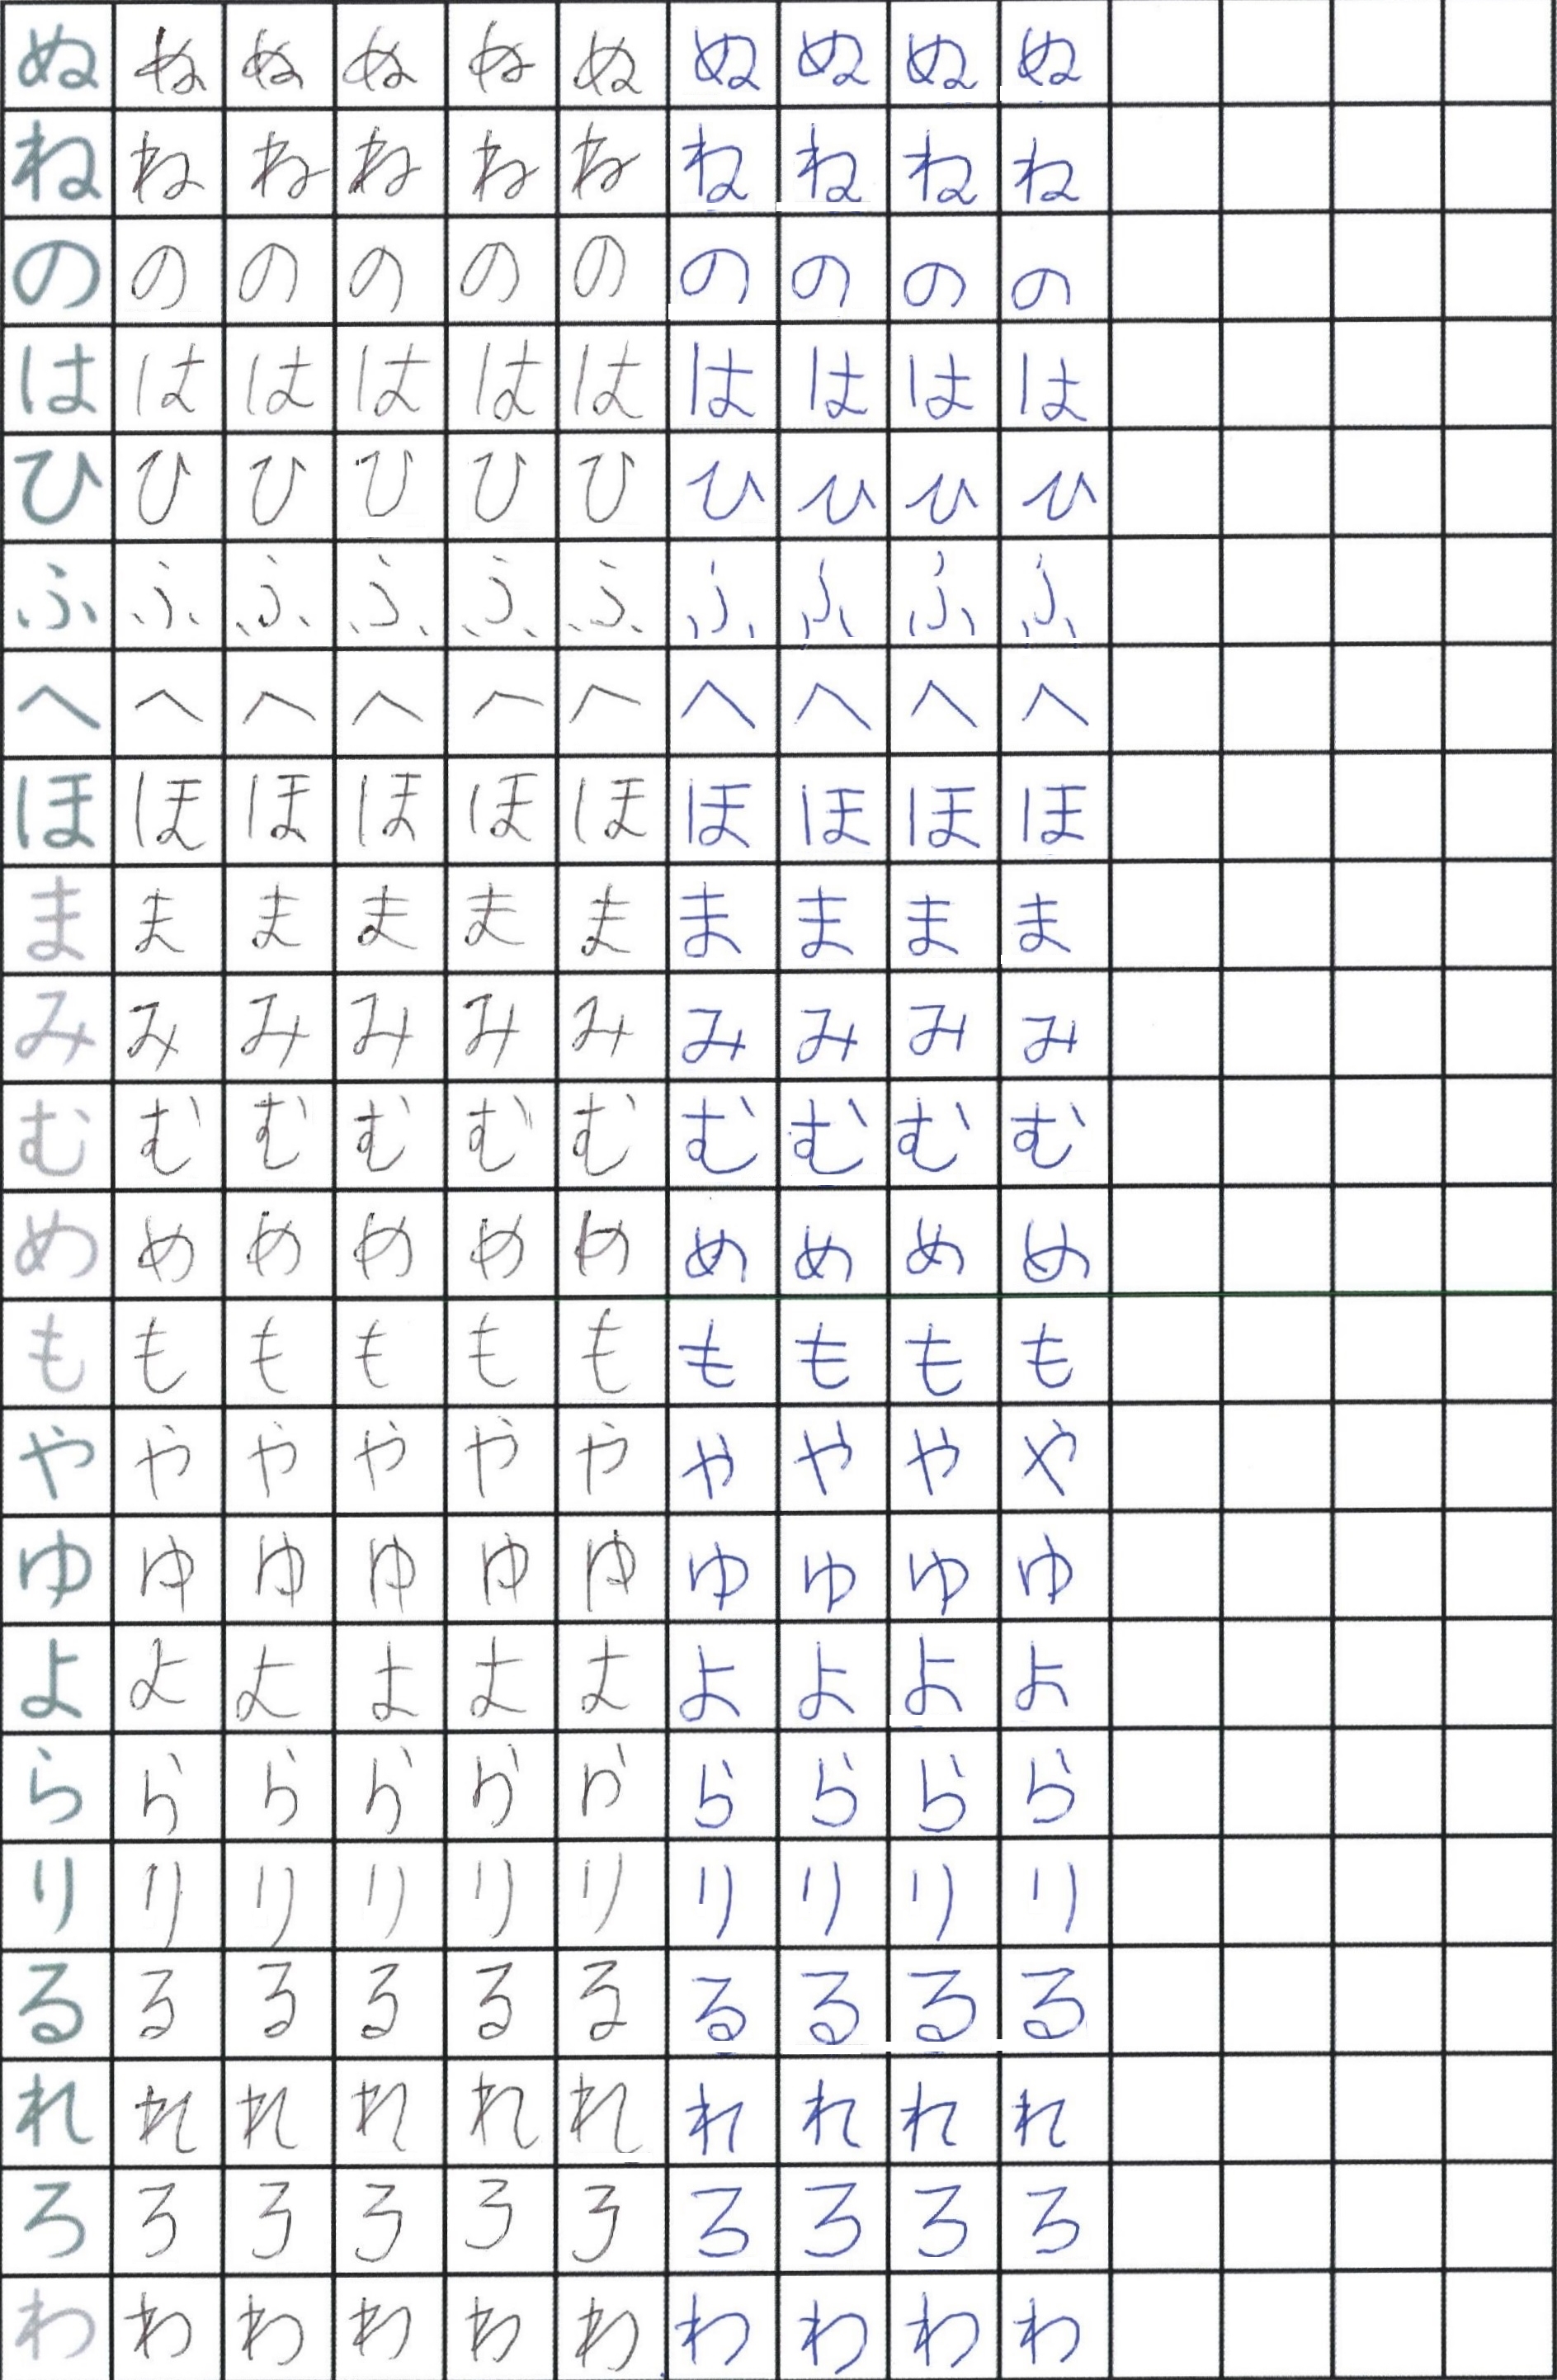 ぬ ぬ ぬ ぬ ぬ ぬ ぬ ぬ ぬ ぬ
ね ね ね ね ね ね ね ね ね ね
の の の の の の の の の の
は は は は は は は は は は
ひ ひ ひ ひ ひ ひ ひ ひ ひ ひ
ふ ふ ふ ふ ふ ふ ふ ふ ふ ふ
へ へ へ へ へ へ へ へ へ へ
ほ ほ ほ ほ ほ ほ ほ ほ ほ ほ
ま ま ま ま ま ま ま ま ま ま
み み み み み み み み み み
む む む む む む む む む む
め め め め め め め め め め
も も も も も も も も も も
や や や や や や や や や や
ゆ ゆ ゆ ゆ ゆ ゆ ゆ ゆ ゆ ゆ
よ よ よ よ よ よ よ よ よ よ
ら ら ら ら ら ら ら ら ら ら
り り り り り り り り り り
る る る る る る る る る る
れ れ れ れ れ れ れ れ れ れ
ろ ろ ろ ろ ろ ろ ろ ろ ろ ろ
わ わ わ わ わ わ わ わ わ わ